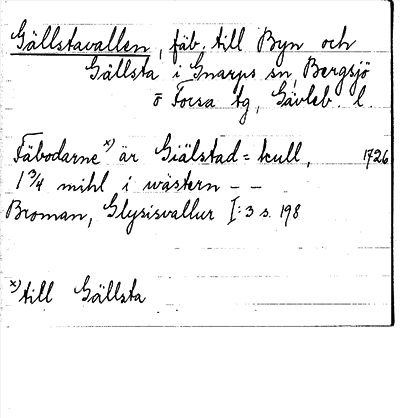 Gällstavallen, fäb. till Byn och
Gällsta i Gnarps sn, Bergsjö
o Forsa tg, Gävleb. l.
Fäbodarne x) är Giälstad = kull, 1726
1 3/4 mihl i wästern – –
Broman, Glysisvallur I:3 s. 198
x) till Gällsta